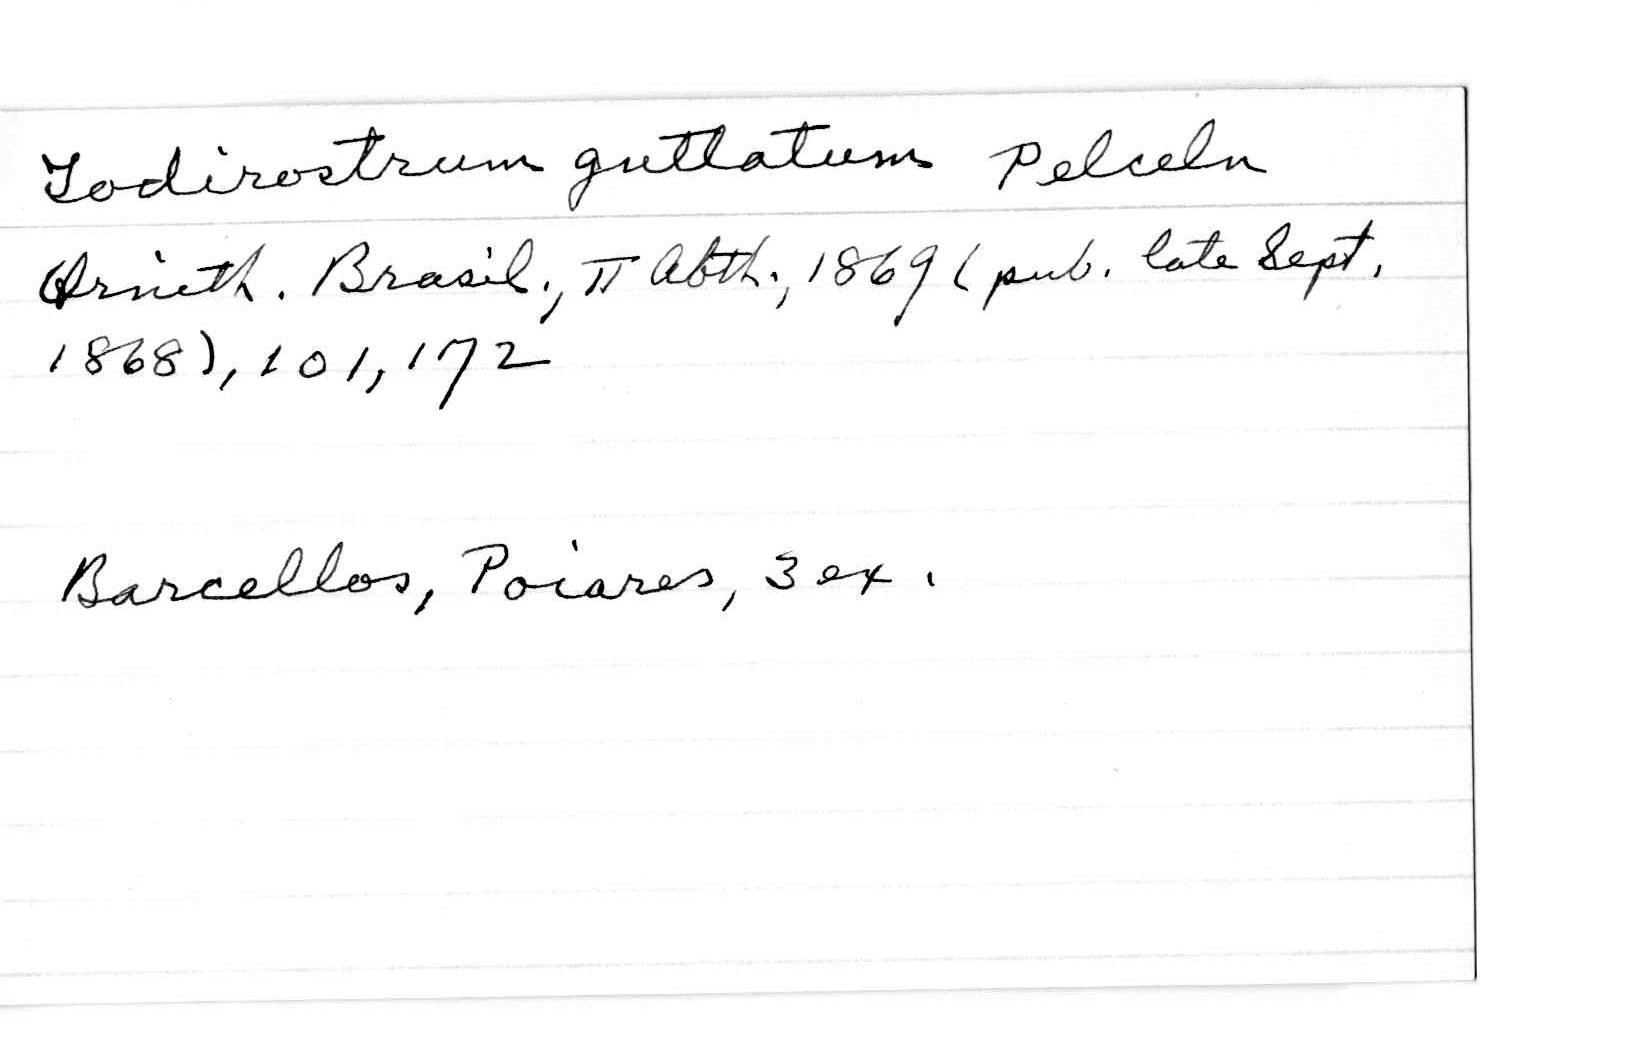 Todirostrum guttatum Pelceln
Ornith. Brasil., II Abth., 1869 (pub. late Sept.
1868), 101, 172
Barcellos, Poiares, 3 ex.